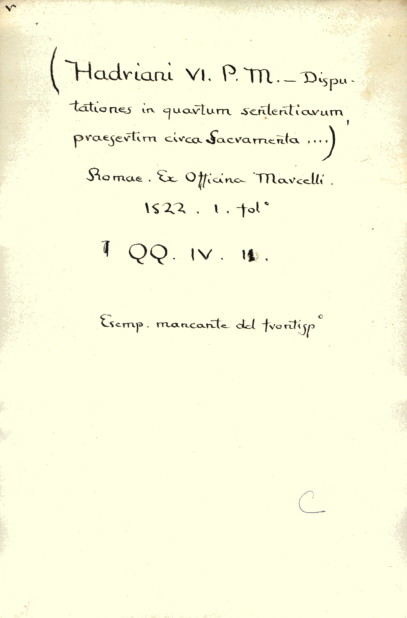 (Hadriani VI. P. M. – Dispu-
tationes in quartum sententiarum,
praesertim circa Sacramenta ....)
Romae. Ex Officina Marcelli.
1522. 1. fol°
QQ. IV. 11.
Esemp. mancante del frontisp°
C